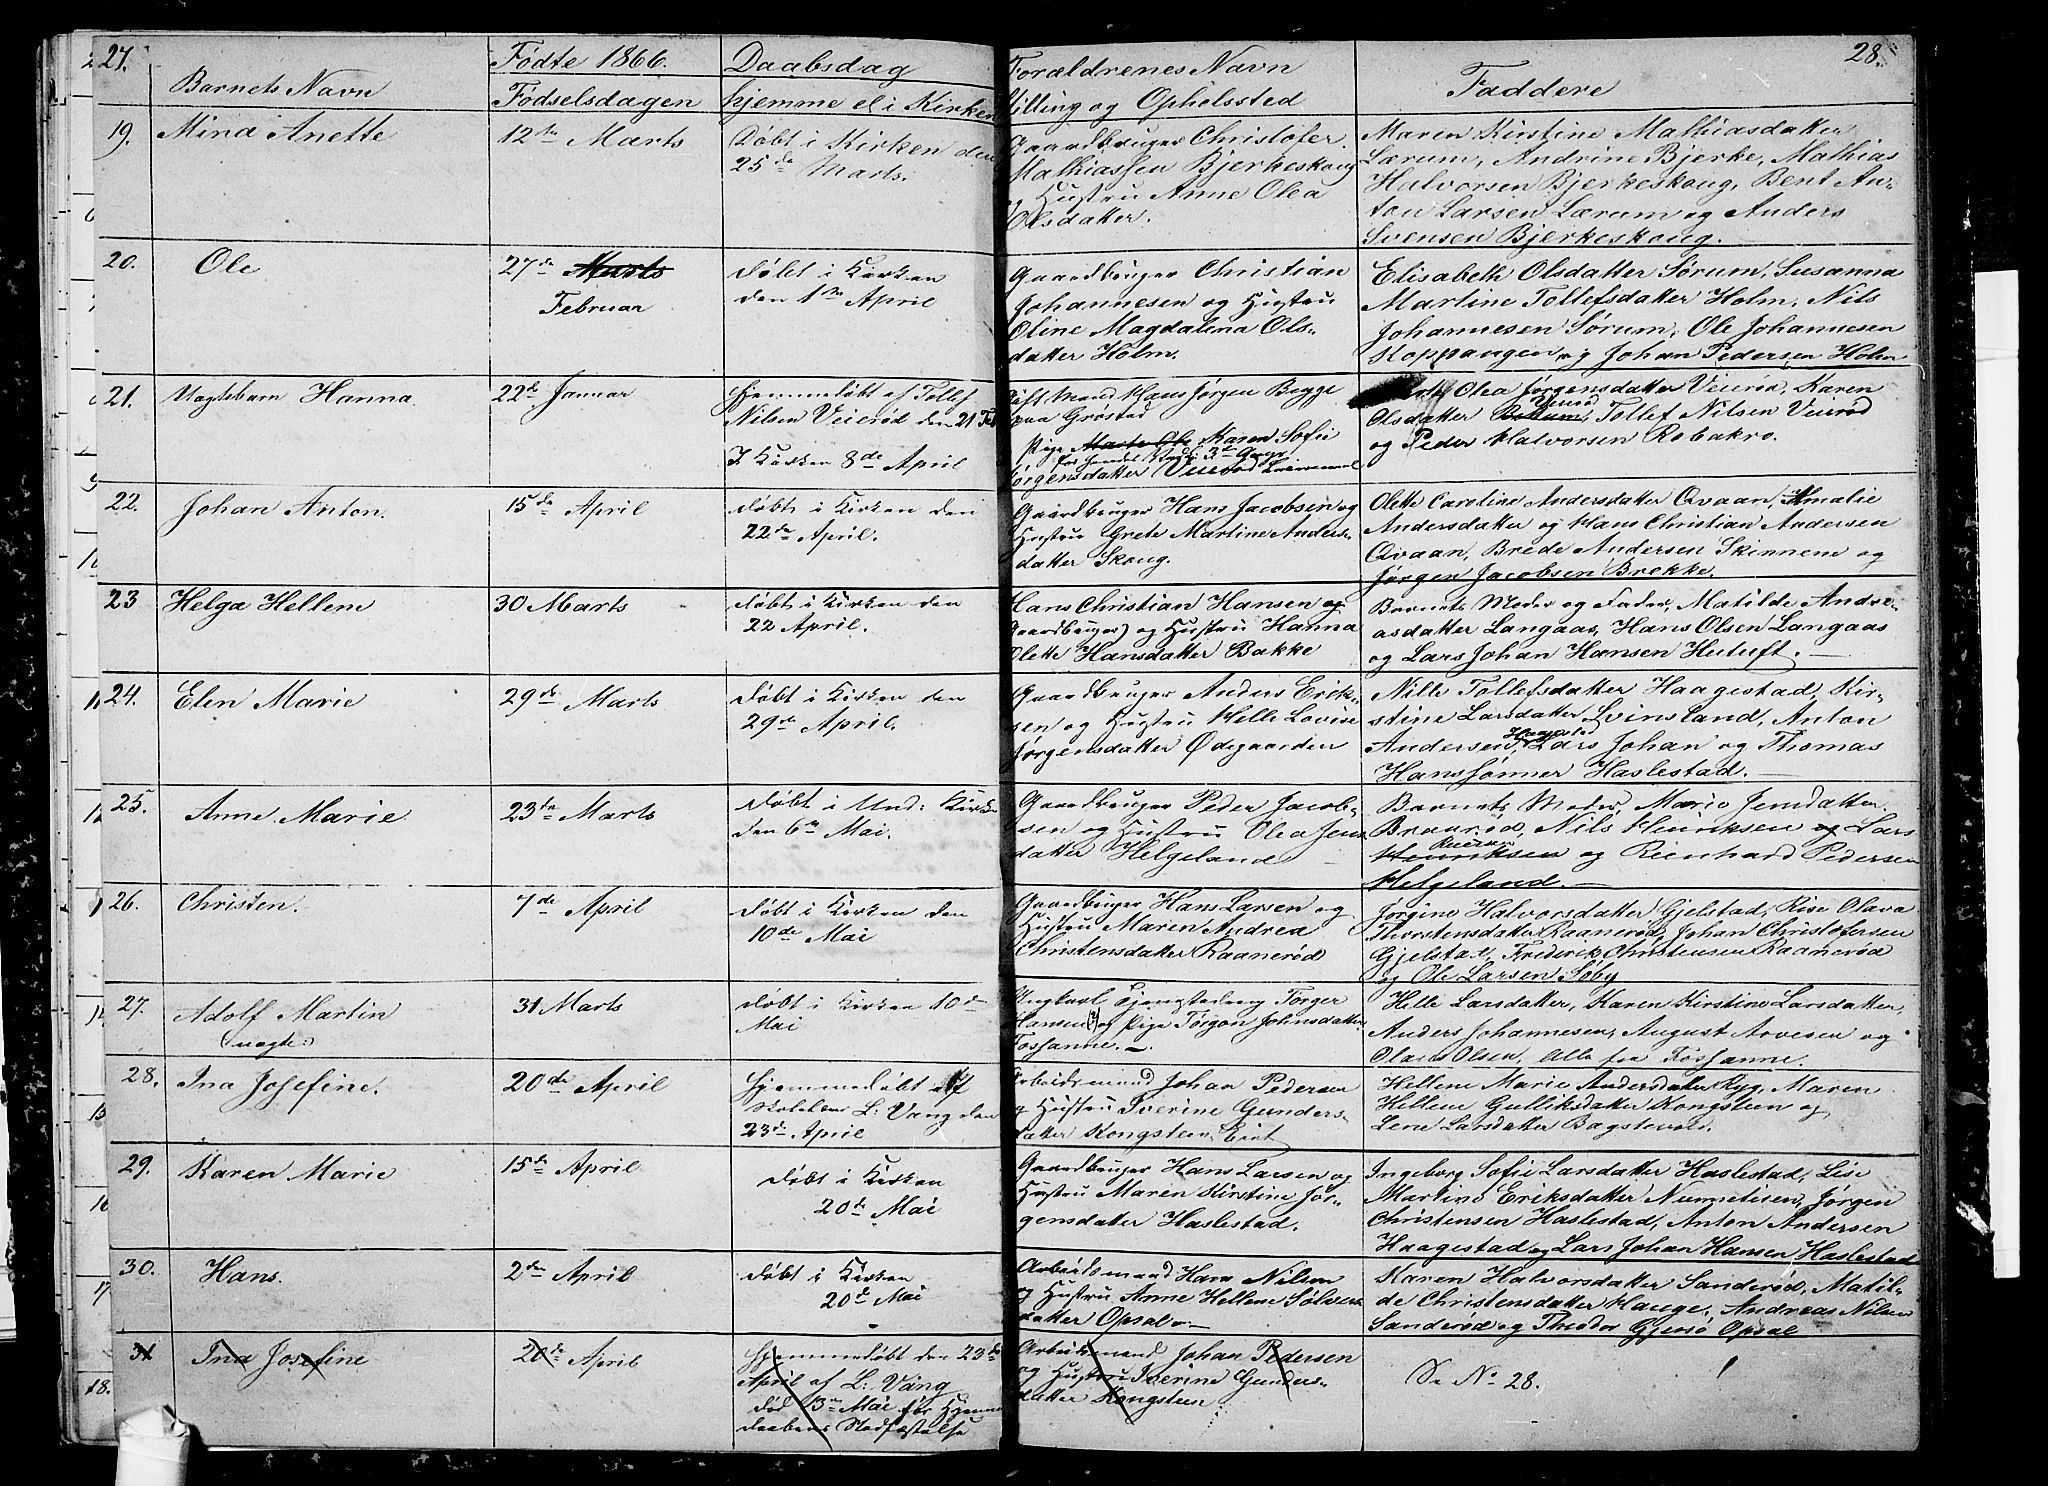 27.
Barnets Navn
Fødte 1866.
Fødselsdagen
Daabsdag
hjemme el. i Kirken
Forældrenes Navn
Stilling og Opholssted
Faddere
28.
19. Mina Anette
12te Marts
Døbt i Kirken den
25de Marts.
Gaardbruger Christofer
Mathiassen Bjerkeskoug
og Hustru Anne Olea
Olsdatter.
Maren Kirstine Mathiasdatter
Lærum, Andrine Bjerke, Mathias
Halvorsen Bjerkeskoug, Bent An-
ton Larsen Lærum og Anders
Svensen Bjerkeskoug.
20. Ole
27de Marts
Februar
Døbt i Kirken
den 1te April
Gaardbruger Christian
Johannesen og Hustru
Oline Magdalena Ols-
datter Holm.
Elisabeth Olsdatter Sørum, Susanna
Martine Tollefsdatter Holm, Nils
Johannesen Sørum, Ole Johannesen
Koppangen og Johan Pedersen Holm
21. Uægtebarn Hanna
22de Januar
Hjemmedøbt af Tollef
Nilsen Veierød den 21 Feb
I Kirken 8de April
Gift Mand Hans Jørgen Bagge
paa Grostad
Pige Marte Ole Karen Sofie
for hendes Vedk: 3de Gang
Jørgensdatter Veierød
Olea Jørgensdatter Veierød, Karen
Olsdatter Veierød, Tollef Nilsen Veierød
og Peder Halvorsen Robakro.
22. Johan Anton.
15de April
Døbt i Kirken den
22de April.
Gaardbruger Hans Jacobsen og
Hustru Grete Martine Anders-
datter Skoug.
Olette Caroline Andersdatter Qvaan, Amalie
Andersdatter og Hans Christian Andersen
Qvaan, Brede Andersen Skinnene og
Jørgen Jacobsen Brekke.
23 Helga Hellene
30 Marts
Døbt i Kirken den
22 April.
Hans Christian Hansen og
Gaardbruger) og Hustru Hanna
Olette Hansdatter Bakke
Barnets Moder og Fader, Matilde Andre-
asdatter Langaas, Hans Olsen Langaas
og Lars Johan Hansen Hutuft.
24. Elen Marie
29de Marts
Døbt i Kirken den
29de April.
Gaardbruger Anders Erik-
sen og Hustru Helle Lovise
Jørgensdatter Ødegaarden
Nille Tollefsdatter Haagestad, Kir-
stine Larsdatter Svinsland, Anton
Andersen Haagestad, Lars Johan og Thomas
Hanssønner Haslestad.
25. Anne Marie
23de Marts
Døbt i Und: Kirke
den 6te Mai.
Gaardbruger Peder Jacob-
sen og Hustru Olea Jens-
datter Helgeland
Barnets Moder, Marie Jensdatter
Braarød, Nils Henriksen og Lars
Henriksen og Reinhard Pedersen
Helgeland.
26. Christen.
7de April
Døbt i Kirken den
10de Mai
Gaardbruger Hans Larsen og
Hustru Maren Andrea
Christensdatter Raanerød
Jørgine Halvorsdatter Gjelstad, Rise Olava
Thorstensdatter Raanerød, Johan Christofersen
Gjelstad, Frederik Christensen Raanerød
og Ole Larsen Søby
27. Adolf Martin
(uægte)
31 Marts
Døbt i Kirken 10de
Mai
Ungkarl Tjenestedreng Torger
Hansen (?) og Pige Torgon Johnsdatter
Fossanne.
Helle Larsdatter, Karen Kirstine Larsdatter,
Anders Johannesen, August Arvesen og
Olaus Olsen, alle fra Fossanne.
28. Ina Josefine.
20de April
Hjemmedøbt af
Skolelærer L: Vang den
23de April
Arbeidsmand Johan Pedersen
og Hustru Iverine Gunders-
datter Kongsteen, Eiet
Hellene Marie Andersdatter Ryg, Maren
Hellene Gulliksdatter Kongsteen og
Lene Larsdatter Bagstevold.
29. Karen Marie
15de April
Døbt i Kirken
20de Mai
Gaardbruger Hans Larsen og
Hustru Maren Kirstine Jør-
gensdatter Haslestad.
Ingeborg Sofie Larsdatter Haslestad, Lise
Martine Eriksdatter Numetisen, Jørgen
Christensen Haslestad, Anton Andersen
Haagestad og Lars Johan Hansen Haslestad
30. Hans.
2den April
Døbt i Kirken
20de Mai
Arbeidsmand Hans Nilsen
og Hustru Anne Hellene Solvers
datter Opsal
Karen Halvorsdatter Sanderød, Matil-
de Christensdatter Hauge, Andreas Nilsen
Sanderød og Theodor Gjersø Opsal
31 Ina Josefine
20de April
Hjemmedøbt den 23de
April af L: Vang
død 13de Mai før Hjemme
daabens Stadfæstelse
Arbeidsmand Johan Pedersen
og Hustru Iverine Gunders-
datter Kongsteen
Se No 28.